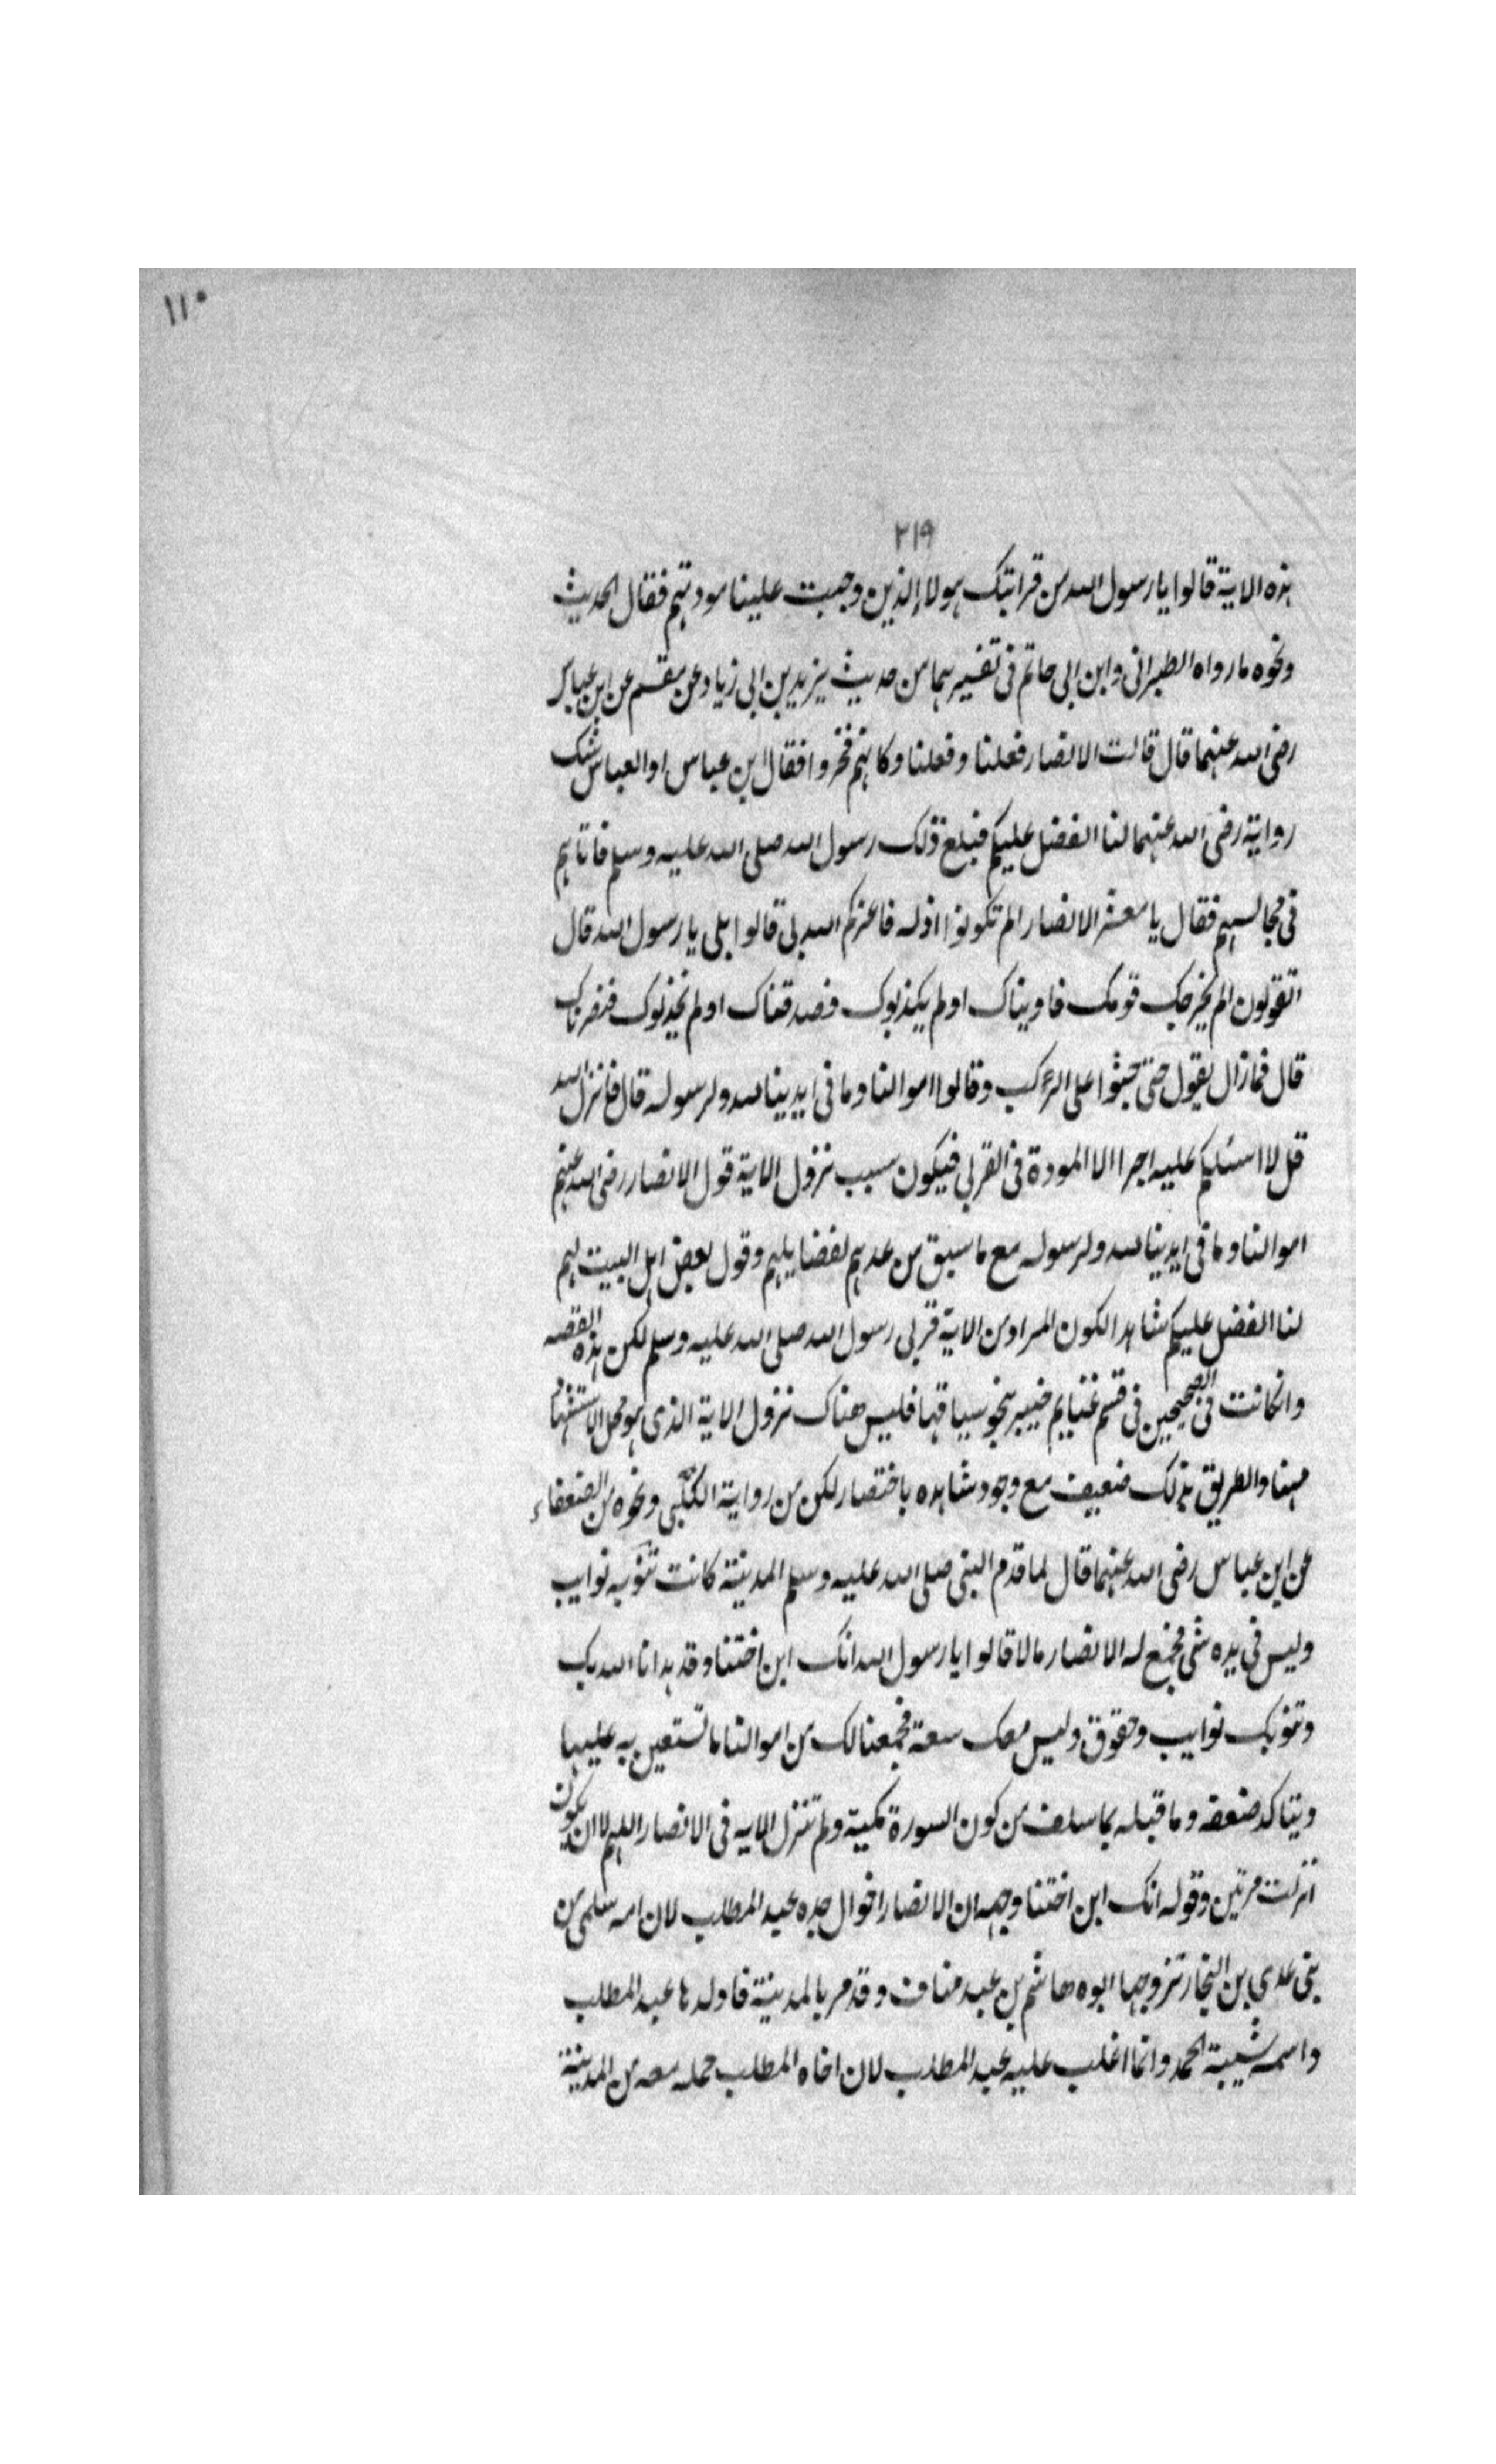 ١١٠
٢١٩
هذه الاية قالوا يا رسول الله من قرابتك هولاء الذين وجبت علينا مودتهم فقال الحديث
ونحوه ما رواه الطبرانى وابن ابى حاتم فى تفسيرهما من حديث يزيد بن ابى زياد عن مقسم عن ابن عباس
رضى الله عنهما قال قالت الانصار فعلنا وفعلنا وكانهم فخروا فقال ابن عباس او العباس شك
رواية رضى الله عنهما لنا الفضل عليكم فبلغ ذلك رسول الله صلى الله عليه وسلم فاتاهم
فى مجالسهم فقال يا معشر الانصار الم تكونوا اذلة فاعزكم الله بى قالوا بلى يا رسول الله قال
اتقولون الم يخرجك قومك فاويناك اولم يكذبوك فصدقناك اولم يخذلوك فنصرناك
قال فما زال يقول حتى جثوا على الركب وقالوا اموالنا وما فى ايدينا لله ولرسوله قال فانزل الله
قل لا اسئلكم عليه اجرا الا المودة فى القربى فيكون سبب نزول الاية قول الانصار رضى الله عنهم
اموالنا وما فى ايدينا لله ولرسوله مع ما سبق من عدهم لفضايلهم وقول بعض اهل البيت لهم
لنا الفضل عليكم شاهد الكون المراد من الاية قربى رسول الله صلى الله عليه وسلم لكن هذه القصه
وانكانت فى الصحيحين فى قسم غنايم خيبر بنحو سياقها فليس هناك نزول الاية الذى هو محل الاستشهاد
مهنا والطريق بذلك ضعيف مع وجود شاهده باختصار لكن من رواية الكلبى ونحوه من الضعفاء
عن ابن عباس رضى الله عنهما قال لما قدم النبى صلى الله عليه وسلم المدينة كانت تنوبه نوايب
وليس فى يده شى فجمع له الانصار مالا قالوا يا رسول الله انك ابن اختنا وقد هدانا الله بك
وتنوبك نوايب وحقوق وليس معك سعة فجمعنا لك من اموالنا ما تستعين به عليها
ويتاكد ضعفه وما قبله بما سلف من كون السورة مكية ولم تنزل الايه فى الانصار اللهم الا ان يكون
انزلت مرتين وقوله انك ابن اختنا وجهه ان الانصار اخوال جده عبد المطلب لان امه سلمى من
بنى عدى بن النجار تزوجها ابوه هاشم بن عبد مناف وقد مر بالمدينة فاولدها عبد المطلب
واسمه شيبة الحمد وانما اغلب عليه عبد المطلب لان اخاه المطلب حمله معه من المدينة